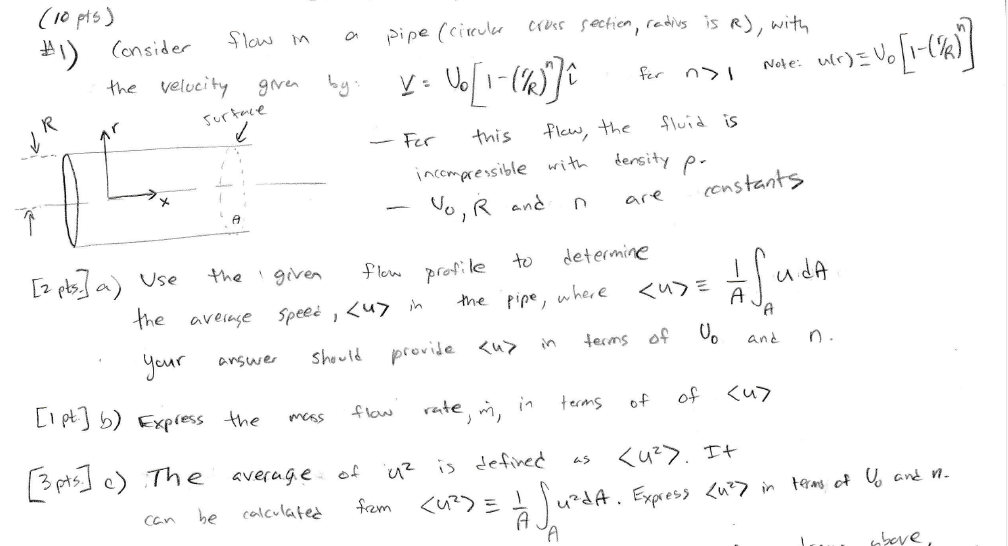 (10 pts)
#1) Consider flow in a pipe (circular cross section, radius is R), with
the velocity given by: V = U₀[1-(r/R)ⁿ]î for n>1 Note: u(r)≡U₀[1-(r/R)ⁿ]
surface
R
r
x
A
— For this flow, the fluid is
incompressible with density ρ.
— U₀, R and n are constants
[2 pts.] a) Use the given flow profile to determine
the average speed, <u> in the pipe, where <u> ≡ 1/A ∫_A u dA
your answer should provide <u> in terms of U₀ and n.
[1 pt.] b) Express the mass flow rate, ṁ, in terms of of <u>
[3 pts.] c) The average of u² is defined as <u²>. It
can be calculated from <u²> ≡ 1/A ∫_A u² dA. Express <u²> in terms of U₀ and n.
above,